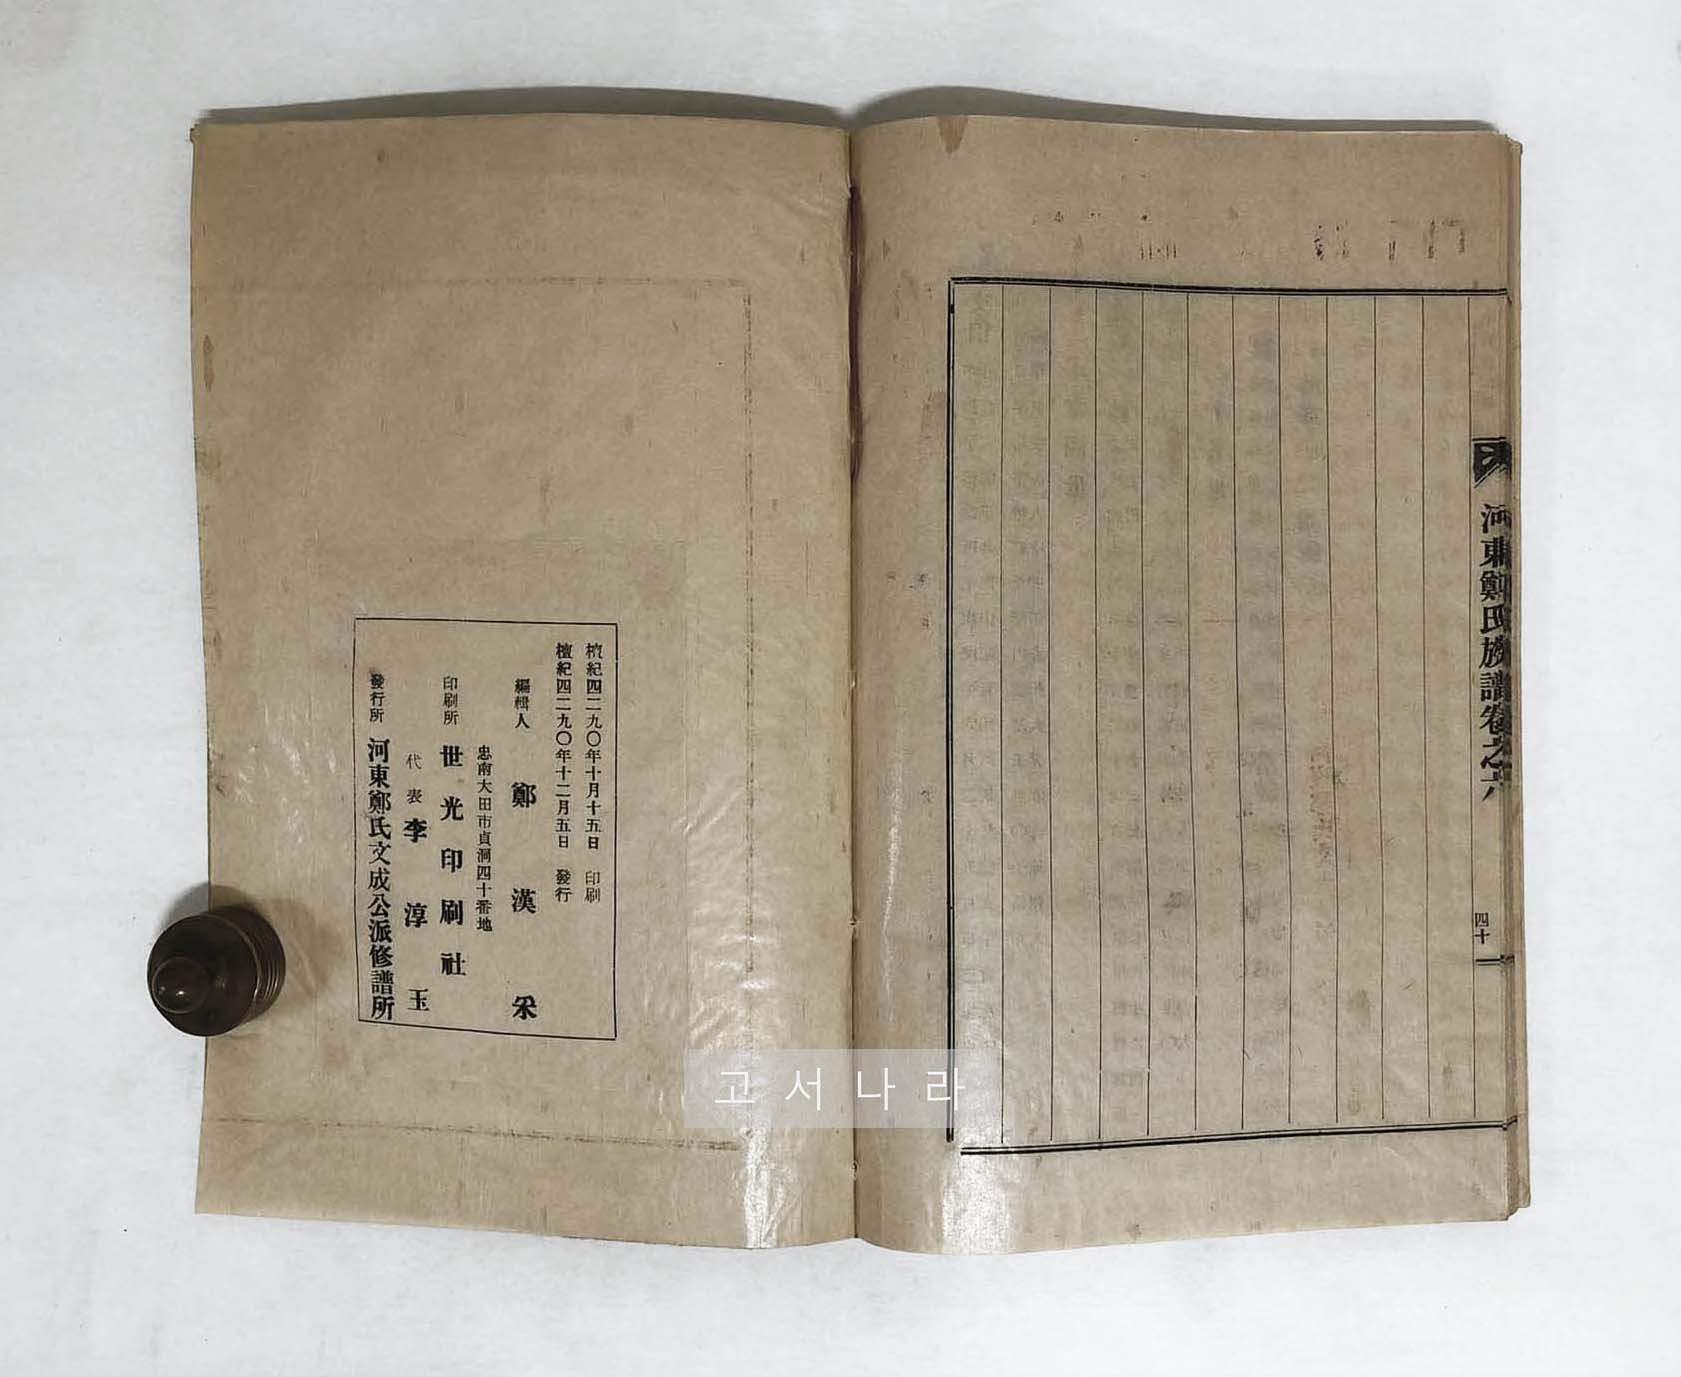 河東鄭氏族譜卷之六
四十
檀紀四二九〇年十月十五日 印刷
檀紀四二九〇年十二月五日 發行
編輯人 鄭漢采
忠南大田市貞洞四十番地
印刷所 世光印刷社
代表 李淳玉
發行所 河東鄭氏文成公派修譜所
고서나라